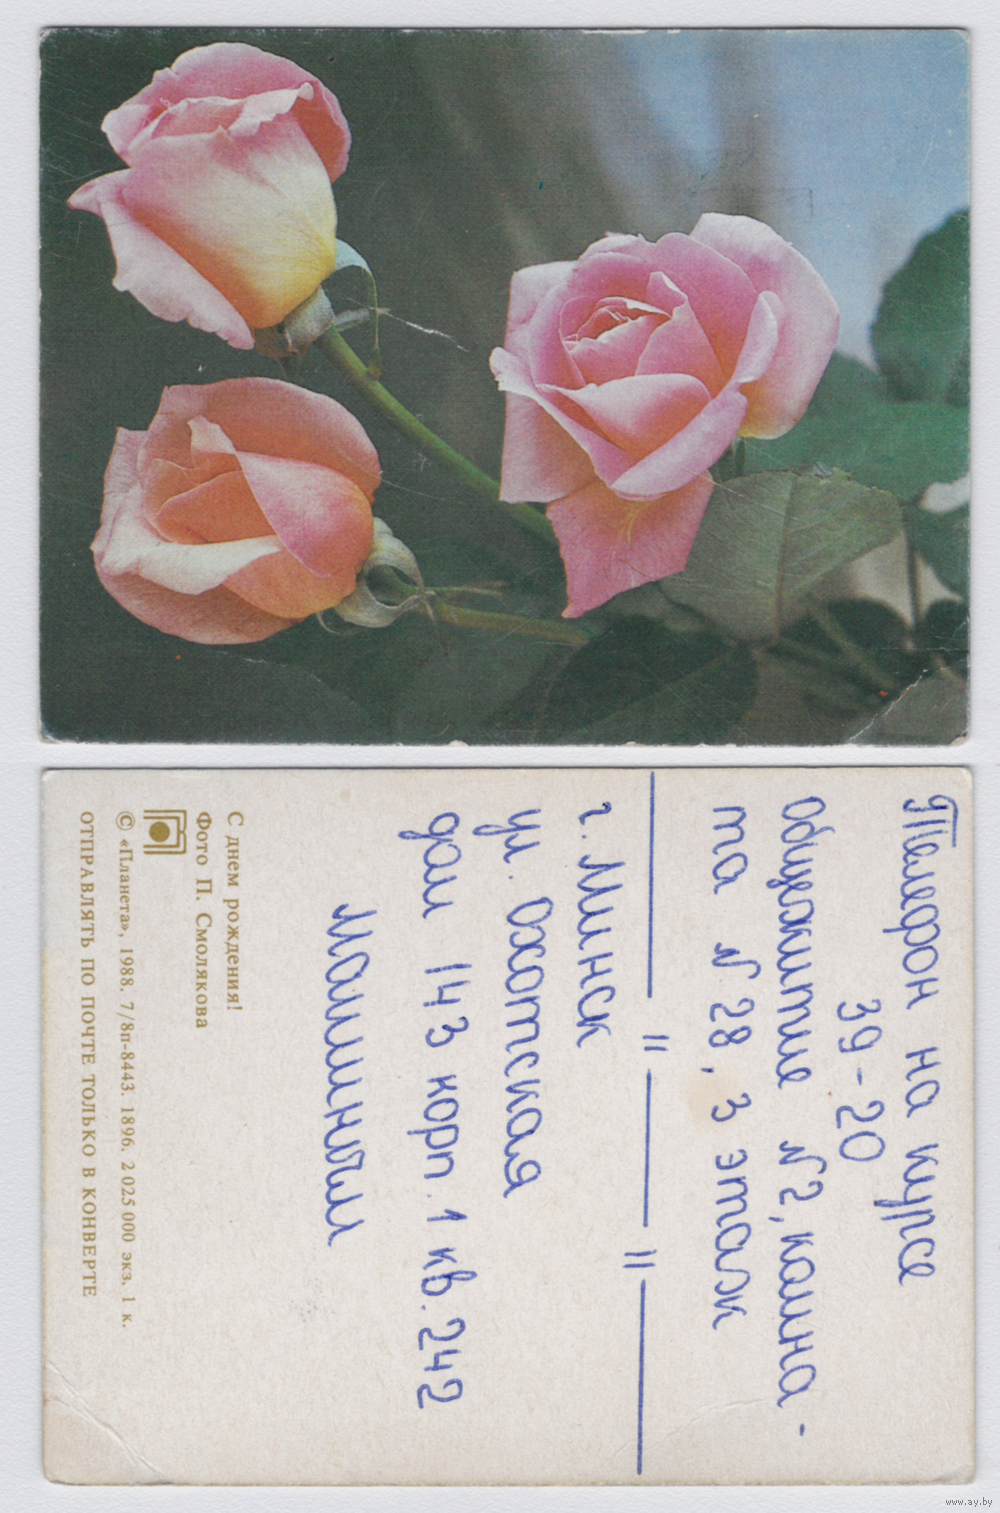 Телефон на курсе
39-20
общежитие N2, комна-
та N 28, 3 этаж
— " — " —
г. Минск
ул. Охотская
дом 143 корп. 1 кв. 242
С днем рождения!
Фото П. Смолякова
© «Планета», 1988. 7/8п-8443. 1896. 2 025 000 экз. 1 к.
ОТПРАВЛЯТЬ ПО ПОЧТЕ ТОЛЬКО В КОНВЕРТЕ
www.ay.by